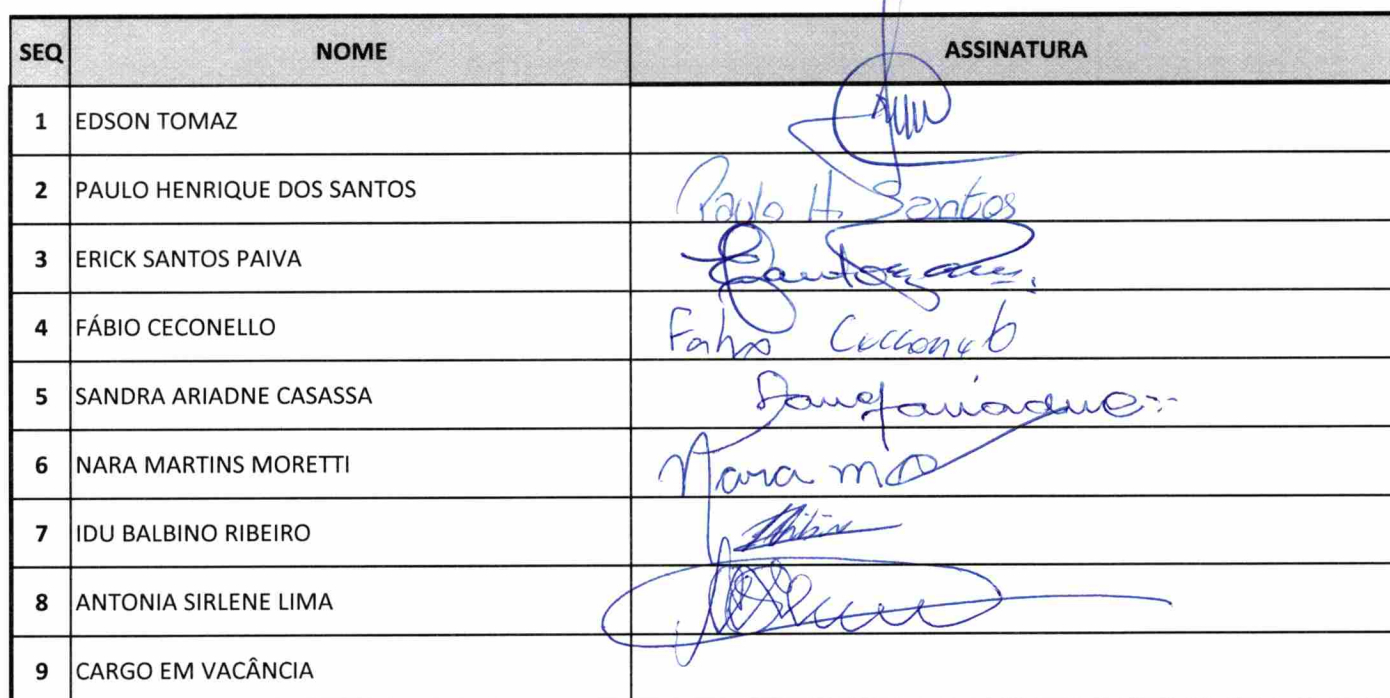 SEQ NOME ASSINATURA
1 EDSON TOMAZ
2 PAULO HENRIQUE DOS SANTOS Paulo H. Santos
3 ERICK SANTOS PAIVA
4 FÁBIO CECONELLO Fabio
5 SANDRA ARIADNE CASASSA
6 NARA MARTINS MORETTI Nara
7 IDU BALBINO RIBEIRO
8 ANTONIA SIRLENE LIMA
9 CARGO EM VACÂNCIA